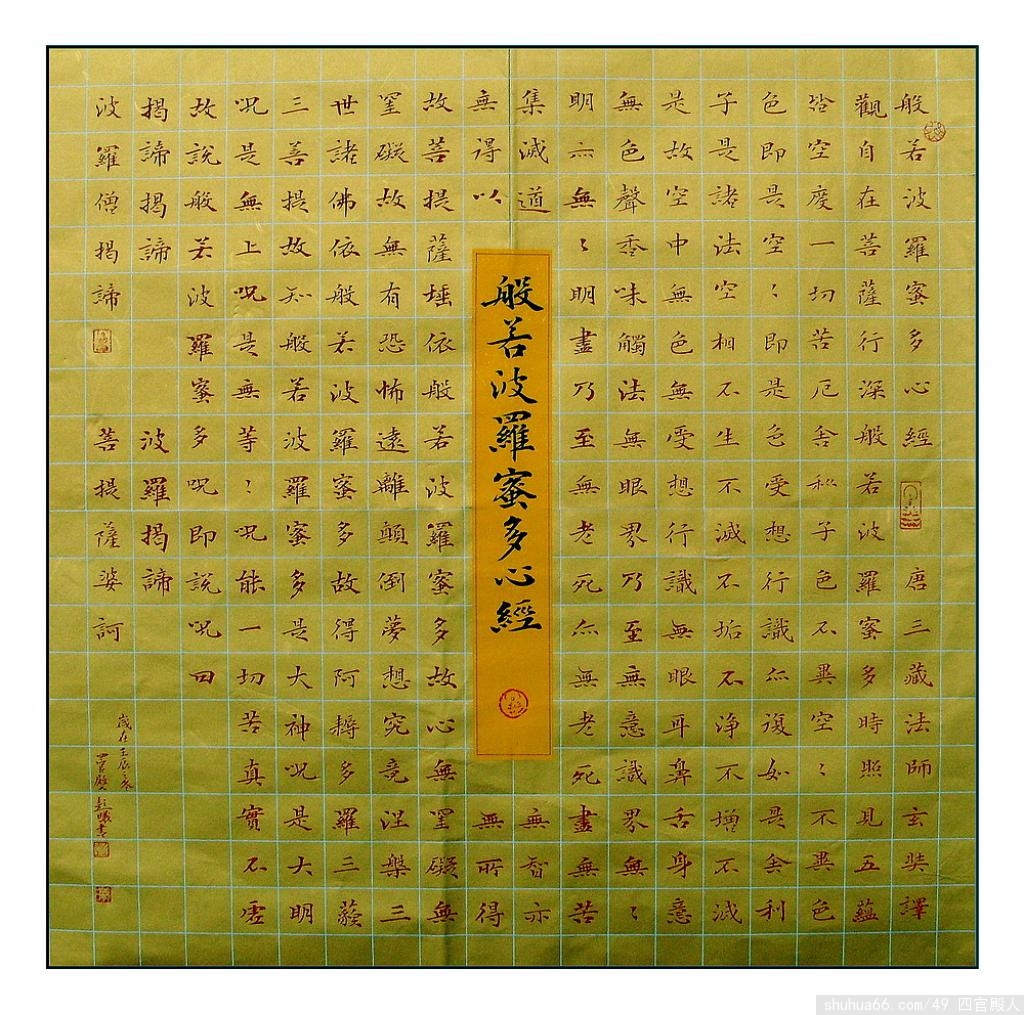 般若波羅蜜多心經 唐三藏法師玄奘譯
觀自在菩薩行深般若波羅蜜多時照見五蘊
皆空度一切苦厄舍利子色不異空〻不異色
色即是空〻即是色受想行識亦復如是舍利
子是諸法空相不生不滅不垢不淨不增不減
是故空中無色無受想行識無眼耳鼻舌身意
無色聲香味觸法無眼界乃至無意識界無〻
明亦無〻明盡乃至無老死亦無老死盡無苦
集滅道 無智亦
般若波羅蜜多心經
無得以 無所得
故菩提薩埵依般若波羅蜜多故心無罣礙無
罣礙故無有恐怖遠離顛倒夢想究竟涅槃三
世諸佛依般若波羅蜜多故得阿耨多羅三藐
三菩提故知般若波羅蜜多是大神呪是大明
呪是無上呪是無等〻呪能一切苦真實不虛
故說般若波羅蜜多呪即說呪曰
揭諦揭諦 波羅揭諦
波羅僧揭諦 菩提薩婆訶
歲在壬辰之冬
shuhua66.com/49 四官殿人